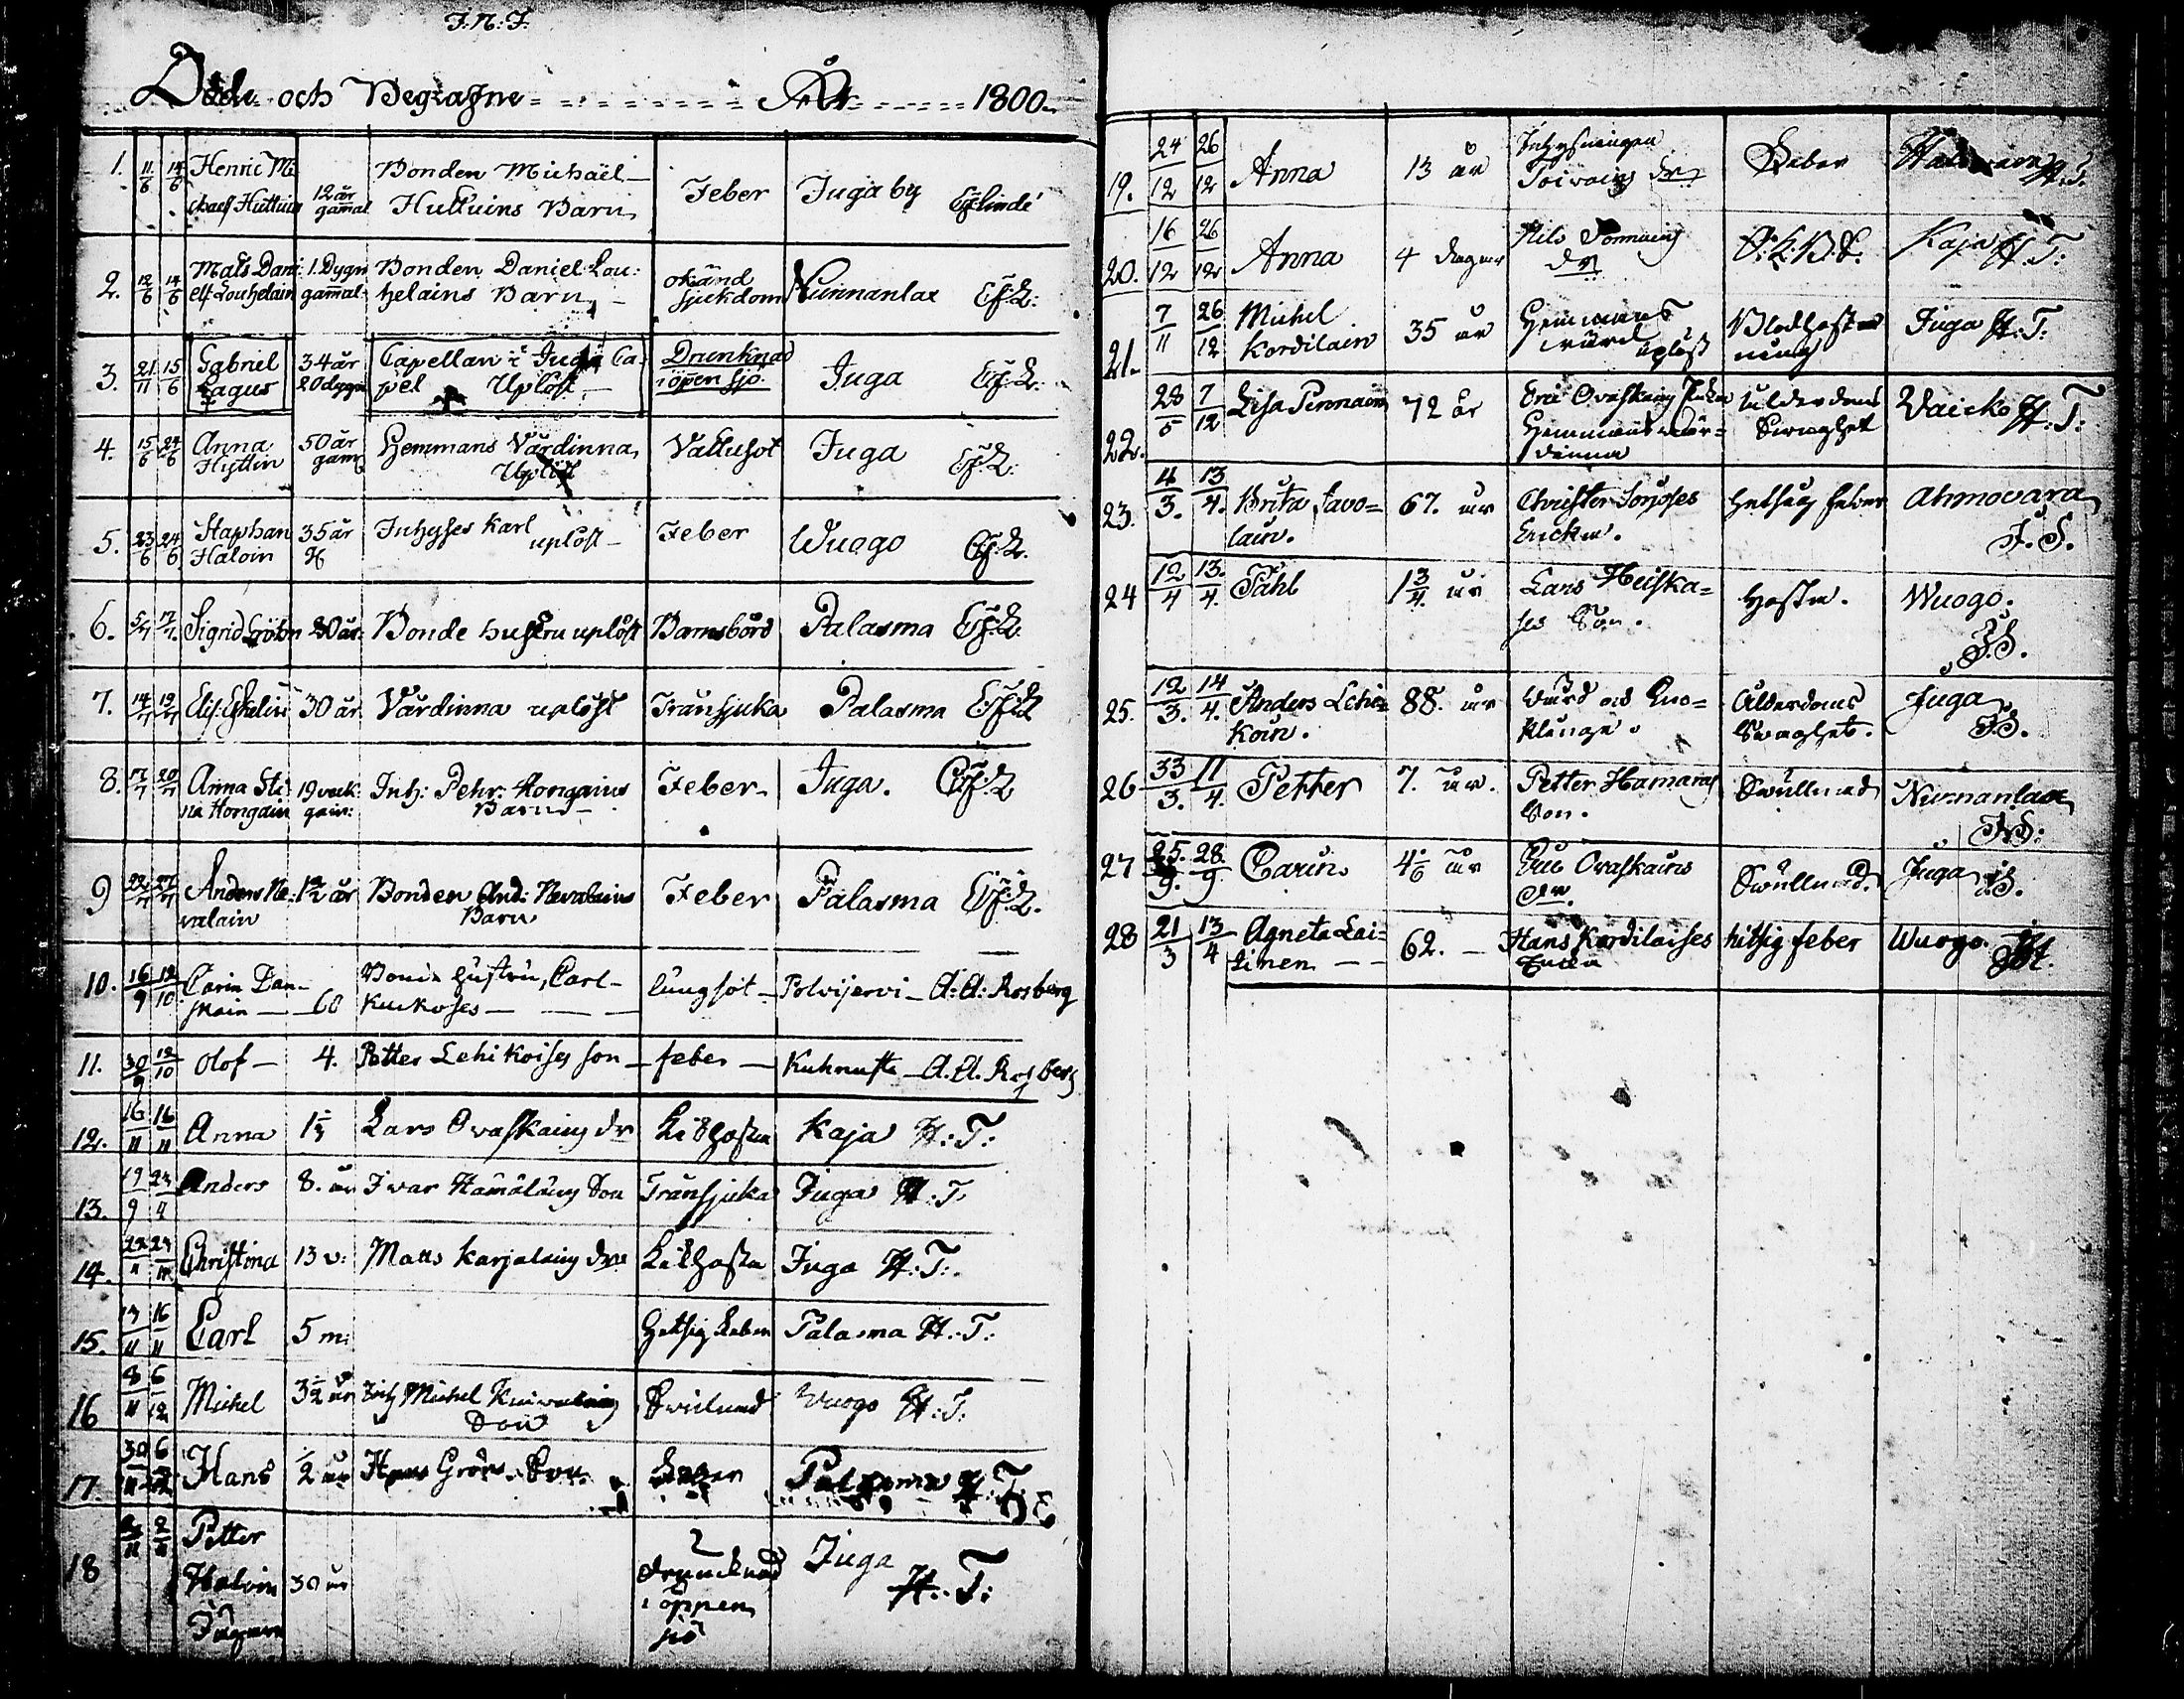 J. N. J.
Döde och Begrafne År 1800
1. 11/6 14/6 Henric Mi 12 år gam̄al Bonden Michaël Feber Juga by
chaels Huttuin Huttuins Barn
2. 12/6 14/6 Mats Dani 1. Dygn Bonden Daniel Lou: okänd Nunnanlax Ef: L:
elss Louhelain gam̄al helains Barn sjukdom
3. 21/11 15/6 Gabriel 34 år Capellan i Juga Ca- Drunknad Juga Ef: L:
Lagus 20 dygn pel Uplöst i öpen sjö
4. 15/6 24/6 Anna 50 år Hemmans Värdinna Vattusot Juga Ef: L:
Hyttin gam̄ Uplöst
5. 23/6 24/6 Staphan 35 år Inhyses Karl Feber Wuogo Ef: L.
Haloin uplöst
6. Sigrid 30 år Bonde hustru uplöst Barnsbörd Palasma Ef: L.
7. 14/7 19/7 30 år Värdinna uplöst Transjuka Palasma Ef: L
8. 17/7 20/7 Anna Sti 19 veck Inh: Pehr: Hongains Feber Juga. Ef: L
na Hongain gam: Barn
9 22/7 27/7 Anders Ne: 1 1/2 år Bonden And: Nevalains Feber Palasma Ef: L.
valain Barn
10. 16/9 12/10 Carin Dan- Bond. Hustru, Carl- lungsot Polvijervi A: A: Rosberg
skain 60 Kuckoses
11. 30/9 12/10 Olof 4. Petter Lehikoises son feber Kuhnusta A. A. Rosberg
12. 16/11 16/11 Anna 1 1/3 Lars Ovaskains dr Kikhosta Kaja H: T:
13. 19/9 Anders 8. år Ivar Hämäläins Son Transjuka Juga H: T.
14. 23/11 Christina 13 v: Matts Karjalains dr Kikhosta Juga H: T:
15. 13/11 16/11 Carl 5 m: Hetsig Feber Palasma H: T:
16 8/11 6/12 Michel 3 1/2 år Inh Michel Wuogo H: T:
Son
17. 30/11 6/12 Hans 1/2 år Hans Grörs Son Feber Palasma H: T:
18 Petter Juga
Haloin 30 år Drunknad H: T:
i öppen
sjö
19. 24/12 26/12 Anna 13 år Inhysningen Feber H. T.
Toivains dr
20. 16/12 26/12 Anna 4 dagar Nils Kaja H: T:
dr
21. 7/11 26/12 Michel 35 år Hemmans Blodhosto Juga H: T:
Kordilain värd uplöst ning
22. 28/5 7/12 Lisa Pennain 72 år Eric Ovaskains Enka ålderdoms Vaicko H: T:
Hemmans wär- Swaghet
dinna
23. 4/3. 13/4. Brita Savo= 67. år Christer Sorsoses hetsig feber Ahmovara
lain. Encka. J. S.
24 12/4 13./4. Påhl 1 3/4. år Lars Heiska= Hosta. Wuogo.
ses Son. J. S.
25. 12/3. 14/4. Anders Lehi= 88. år Ålderdoms Juga
koin. Swaghet. J. S.
26 33/3. 11/4. Petter 7. år. Petter Hamains Swullnad Nunnanlax
Son. J. S:
27 25./9. 28./9 Carin 4/6 år Ovaskains Swullnad. Juga J. S.
dr.
28 21/3 13/4 Agneta Lai= 62. Hans Kordilaises hitsig feber Wuogo.
tinen Enka